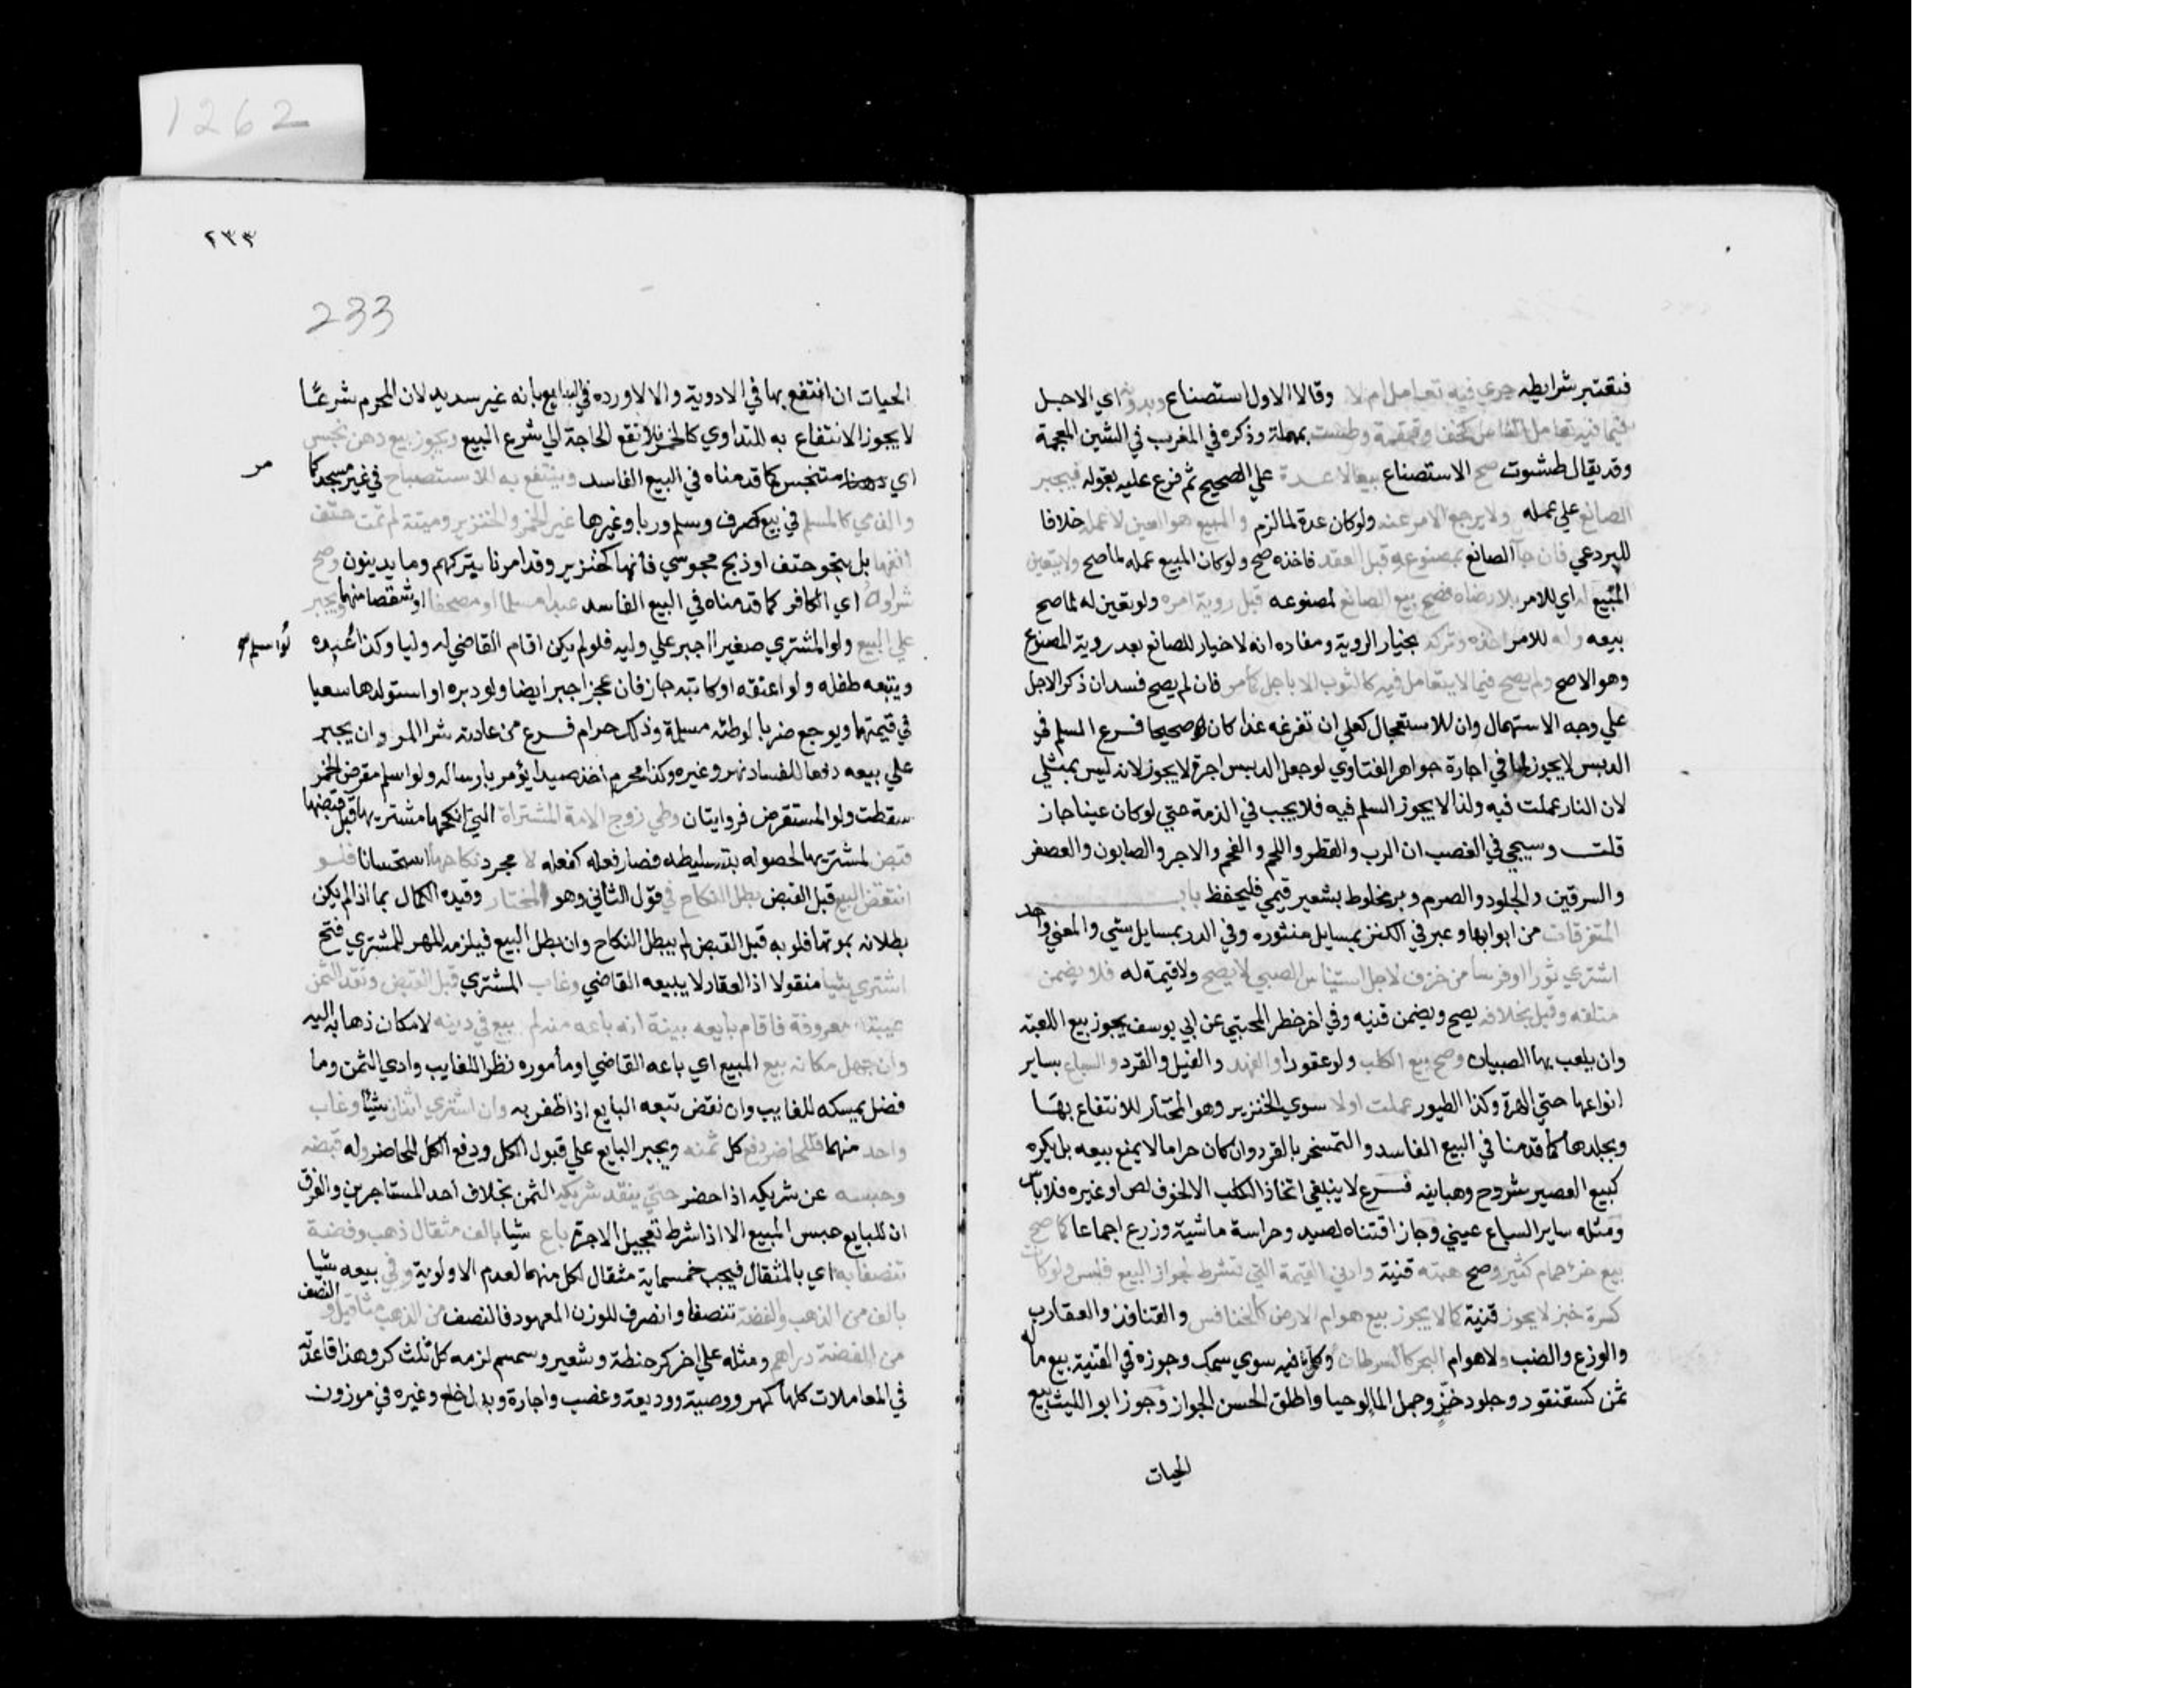 1262
فتعتبر شرايطه جري فيه تعامل ام لا وقالا الاول استصناع وبدونه اي الاجل
فيما فيه تعامل الناس كخف وقمقمة وطست بمهملة وذكره في المغرب في الشين المعجمة
وقد يقال طشوت صح الاستصناع بيعا لا عدة علي الصحيح ثم فرع عليه بقوله فيجبر
الصانع علي عمله ولا يرجع الامر عنه ولو كان عدة لما لزم والمبيع هو العين لا عمله خلافا
للبردعي فان جآ الصانع بمصنوعه قبل العقد فاخذه صح ولو كان المبيع عمله لما صح ولا يتعين
المبيع له اي للامر بلا رضاه فصح بيع الصانع لمصنوعه قبل روية امره ولو تعين له لما صح
بيعه وله للامر اخذه وتركه بخيار الروية ومفاده انه لا خيار للصانع بعد روية المصنوع
وهو الاصح ولم يصح فيما لا يتعامل فيه كالثوب الا باجل كما مر فان لم يصح فسد ان ذكر الاجل
علي وجه الاستمهال وان للاستعجال كعلي ان تفرغه غدا كان صحيحا فرع السلم في
الدبس لا يجوز لما في اجارة جواهر الفتاوي لو جعل الدبس اجرة لا يجوز لانه ليس بمثلي
لان النار عملت فيه ولذا لا يجوز السلم فيه فلا يجب في الذمة حتي لو كان عينا جاز
قلت وسيجي في الغصب ان الرب والقطر واللحم والفحم والاجر والصابون والعصفر
والسرقين والجلود والصرم وبر مخلوط بشعير قيمي فليحفظ باب
المتفرقات من ابوابها وعبر في الكنز بمسايل منثوره وفي الدرر بمسايل شتي والمعني واحد
اشتري ثورا او فرسا من خزف لاجل استيناس الصبي لا يصح ولا قيمة له فلا يضمن
متلفه وقيل بخلافه يصح ويضمن قنيه وفي اخر حظر المجتبي عن ابي يوسف يجوز بيع اللعبة
وان يلعب بها الصبيان وصح بيع الكلب ولو عقورا والفهد والفيل والقرد والسباع بساير
انواعها حتي الهرة وكذا الطيور عملت اولا سوي الخنزير وهو المختار للانتفاع بها
وبجلدها كما قدمنا في البيع الفاسد والتمسخر بالقرد وان كان حراما لا يمنع بيعه بل يكره
كبيع العصير شرح وهبانيه فرع لا ينبغي اتخاذ الكلب الا لخوف لص او غيره فلا باس
ومثله ساير السباع عيني وجاز اقتناه لصيد وحراسة ماشية وزرع اجماعا كما صح
بيع خرؤ حمام كثير وصح هبته قنية وادني القيمة التي تشترط لجواز البيع فلس ولو كانت
كسرة خبز لا يجوز قنية كما لا يجوز بيع هوام الارض كالخنافس والقنافذ والعقارب
والوزغ والضب ولا هوام البحر كالسرطان وكل ما فيه سوي سمك وجوزه في القنية بيع ما له
ثمن كسقنقور وجلود خز وجمل الما لو حيا واطلق الحسن الجواز وجوز ابو الليث بيع
الحيات
٢٣٣
233
الحيات ان انتفع بها في الادوية والا لا ورده في البدايع بانه غير سديد لان المحرم شرعا
لا يجوز الانتفاع به للتداوي كالخمر فلا تقع الحاجة الي شرع البيع ويجوز بيع دهن نجس
اي متنجس كما قدمناه في البيع الفاسد وينتفع به للاستصباح في غير مسجد كما
مر
والذمي كالمسلم في بيع كصرف وسلم وربا وغيرها غير الخمر والخنزير وميتة لم تمت حتف
انفها بل بنحو حتف او ذبح مجوسي فانها كخنزير وقد امرنا بتركهم وما يدينون وصح
شراوه اي الكافر كما قدمناه في البيع الفاسد عبدا مسلما او مصحفا او شقصا منهما ويجبر
علي البيع ولو المشتري صغيرا اجبر علي وليه فلو لم يكن اقام القاضي له وليا وكذا عبده
لو اسلم
ويتبعه طفله ولو اعتقه او كاتبه جاز فان عجز اجبر ايضا ولو دبره او استولدها سعيا
في قيمتهما ويوجع ضربا لوطئه مسلمة وذلك حرام فرع من عادته شرا المرد ان يجبر
علي بيعه دفعا للفساد نهر وغيره وكذا محرم اخذ صيدا يؤمر بارساله ولو اسلم مقرض الخمر
سقطت ولو المستقرض فروايتان وطي زوج الامة المشتراة التي انكحها مشتريها قبل قبضها
قبض لمشتريها لحصوله بتسليطه فصار فعله كفعله لا مجرد نكاحها استحسانا فلو
انتقض البيع قبل القبض بطل النكاح في قول الثاني وهو المختار وقيده الكمال بما اذا لم يكن
بطلانه بموتها فلو به قبل القبض لم يبطل النكاح وان بطل البيع فيلزمه المهر للمشتري فتح
اشتري شيا منقولا اذ العقار لا يبيعه القاضي وغاب المشتري قبل القبض ونقد الثمن
غيبته معروفة فاقام بايعه بينة انه باعه منه لم يبع في دينه لامكان ذهابه اليه
وان جهل مكانه بيع المبيع اي باعه القاضي او مأموره نظرا للغايب وادي الثمن وما
فضل يمسكه للغايب وان نقض تبعه البايع اذا ظفر به وان اشتري اثنان شيا وغاب
واحد منهما فللحاضر دفع كل ثمنه ويجبر البايع علي قبول الكل ودفع الكل للحاضر وله قبضه
وحبسه عن شريكه اذا حضر حتي ينقد شريكه الثمن بخلاف احد المستاجرين والفرق
ان للبايع حبس المبيع الا اذا شرط تعجيل الاجرة باع شيا بالف مثقال ذهب وفضة
تنصفا به اي بالمثقال فيجب خمسماية مثقال لكل منهما لعدم الاولوية وفي بيعه شيا
بالف من الذهب والفضة تنصفا وانصرف للوزن المعهود فالنصف من الذهب مثاقيل والنصف
من الفضة دراهم ومثله علي اخر كر حنطة وشعير وسمسم لزمه كل ثلث كر وهذا قاعدته
في المعاملات كلها كمهر ووصية ووديعة وغصب واجارة وبدل خلع وغيره في موزون